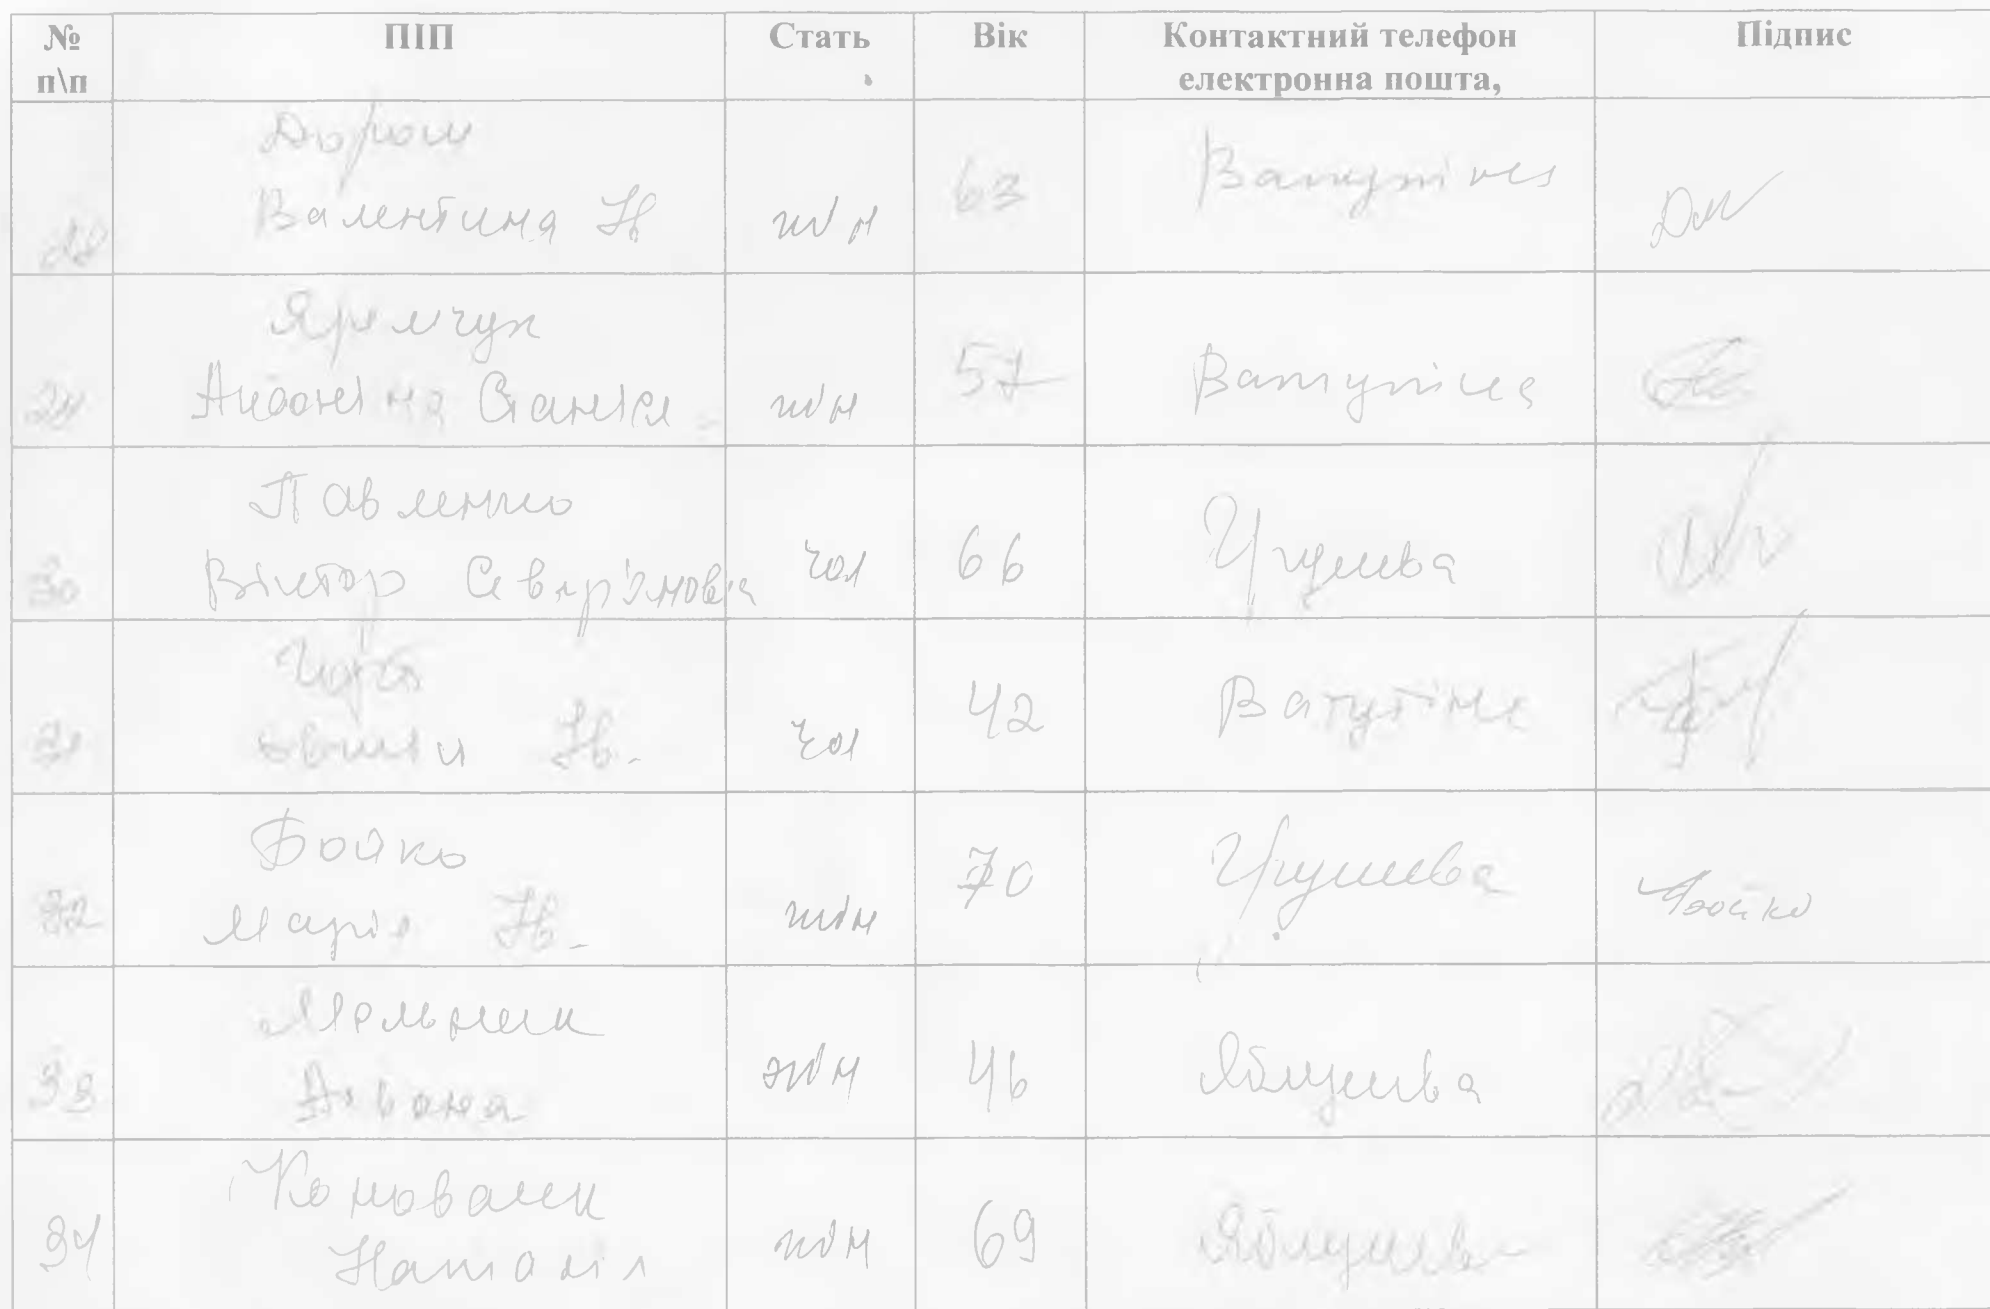 № п\п ПІП Стать Вік Контактний телефон електронна пошта, Підпис
Дорош
Валентина Н жін 63 Ватутіне
Яремчук
Антоніна Станісл жін 57 Ватутіне
Павленко
30 Віктор Север'янович чол 66 Грушева
31 Н. чол 42 Ватутіне
Бойко
32 Марія Н. жін 70 Грушева Бойко
Мельник
33 жін 46 Яблунева
Коновалик
34 Наталія жін 69 Яблунева